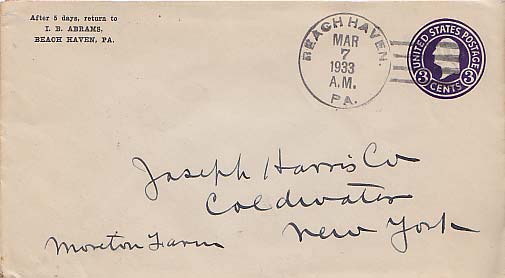 After 5 days, return to
I. B. ABRAMS,
BEACH HAVEN, PA.
BEACH HAVEN.
MAR
7
1933
A.M.
PA.
UNITED STATES POSTAGE
3 CENTS 3
Joseph Harris Co
Coldwater
New York
Moreton Farm